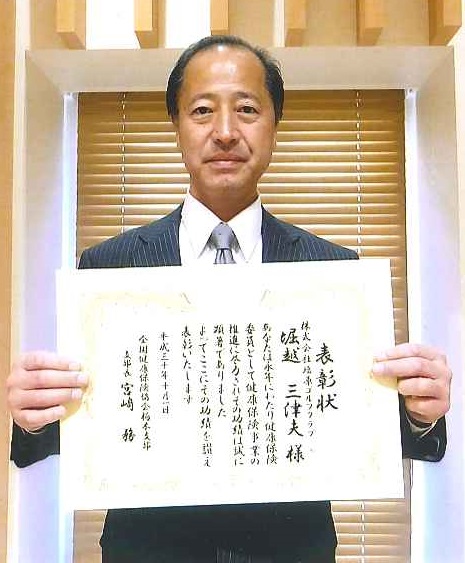 表彰状
株式会社塩原ゴルフクラブ
堀越 三津夫 様
あなたは永年にわたり健康保険
委員として健康保険事業の
推進に尽力されその功績は誠に
顕著でありました
よってここにその功績を讃え
表彰いたします
平成三十年十月一日
全国健康保険協会栃木支部
支部長 宮崎 務